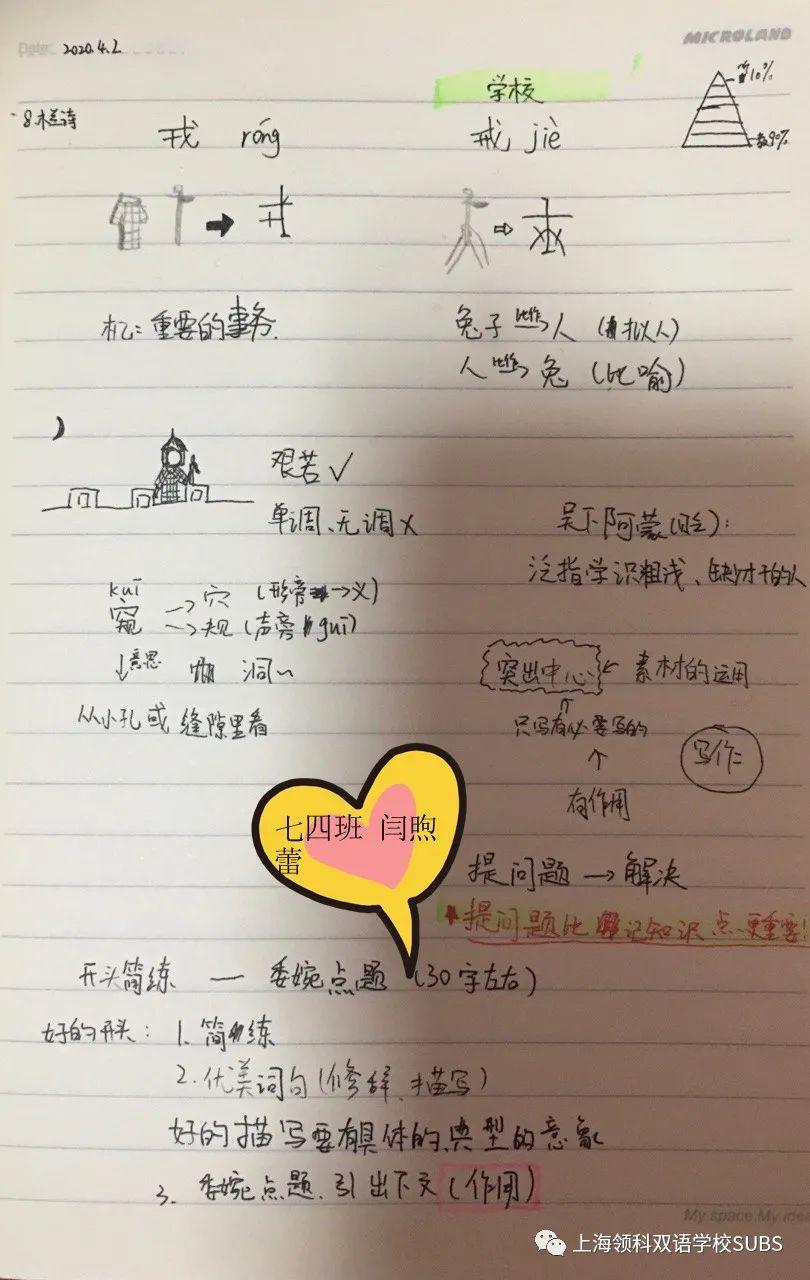 Date: 2020.4.2
MICROLAND
学校
10%
90%
8.木兰诗
戎 róng
戒 jiè
机:重要的事务.
兔子 比作 人 (拟人)
人 比作 兔 (比喻)
艰苦 ✓
单调、无调 ×
吴下阿蒙(贬):
泛指学识粗浅、缺少才干的人
kuī
窥 → 穴 (形旁 → 义)
→ 规 (声旁 guī)
↓意思 洞
从小孔或 缝隙里看
突出中心 ← 素材的运用
↑
只写有必要写的
↑
有作用
写作:
七四班 闫煦
蕾
提问题 → 解决
提问题比 记知识点更重要!
开头简练 — 委婉点题 (30字左右)
好的开头: 1. 简练
2. 优美词句(修辞、描写)
好的描写要有具体的、典型的意象
3. 委婉点题、引出下文(作用)
My space My idea
上海领科双语学校SUBS